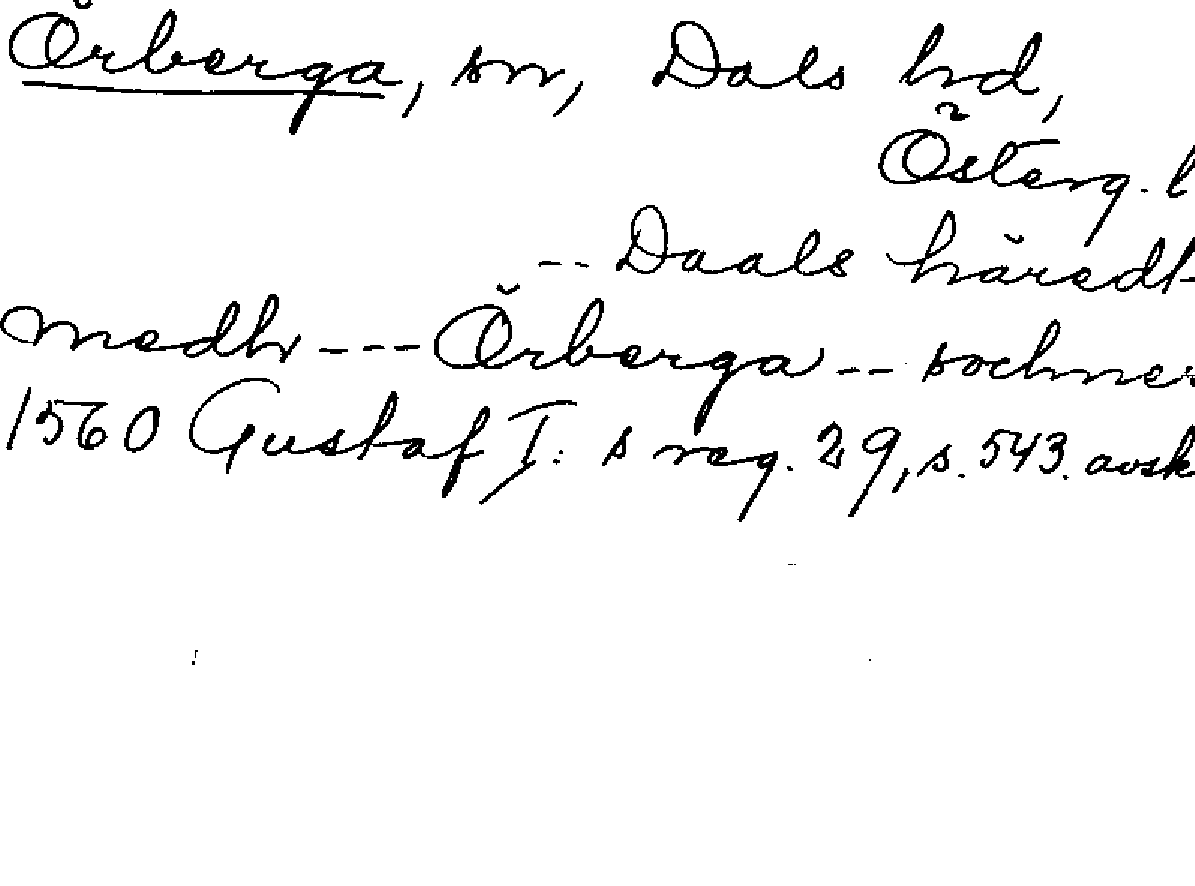 Örberga, sn, Dals hd,
Österg. l
-- Daals häredt-
medh --- Örberga -- sochner
1560 Gustaf I:s reg. 29, s. 543. avsk